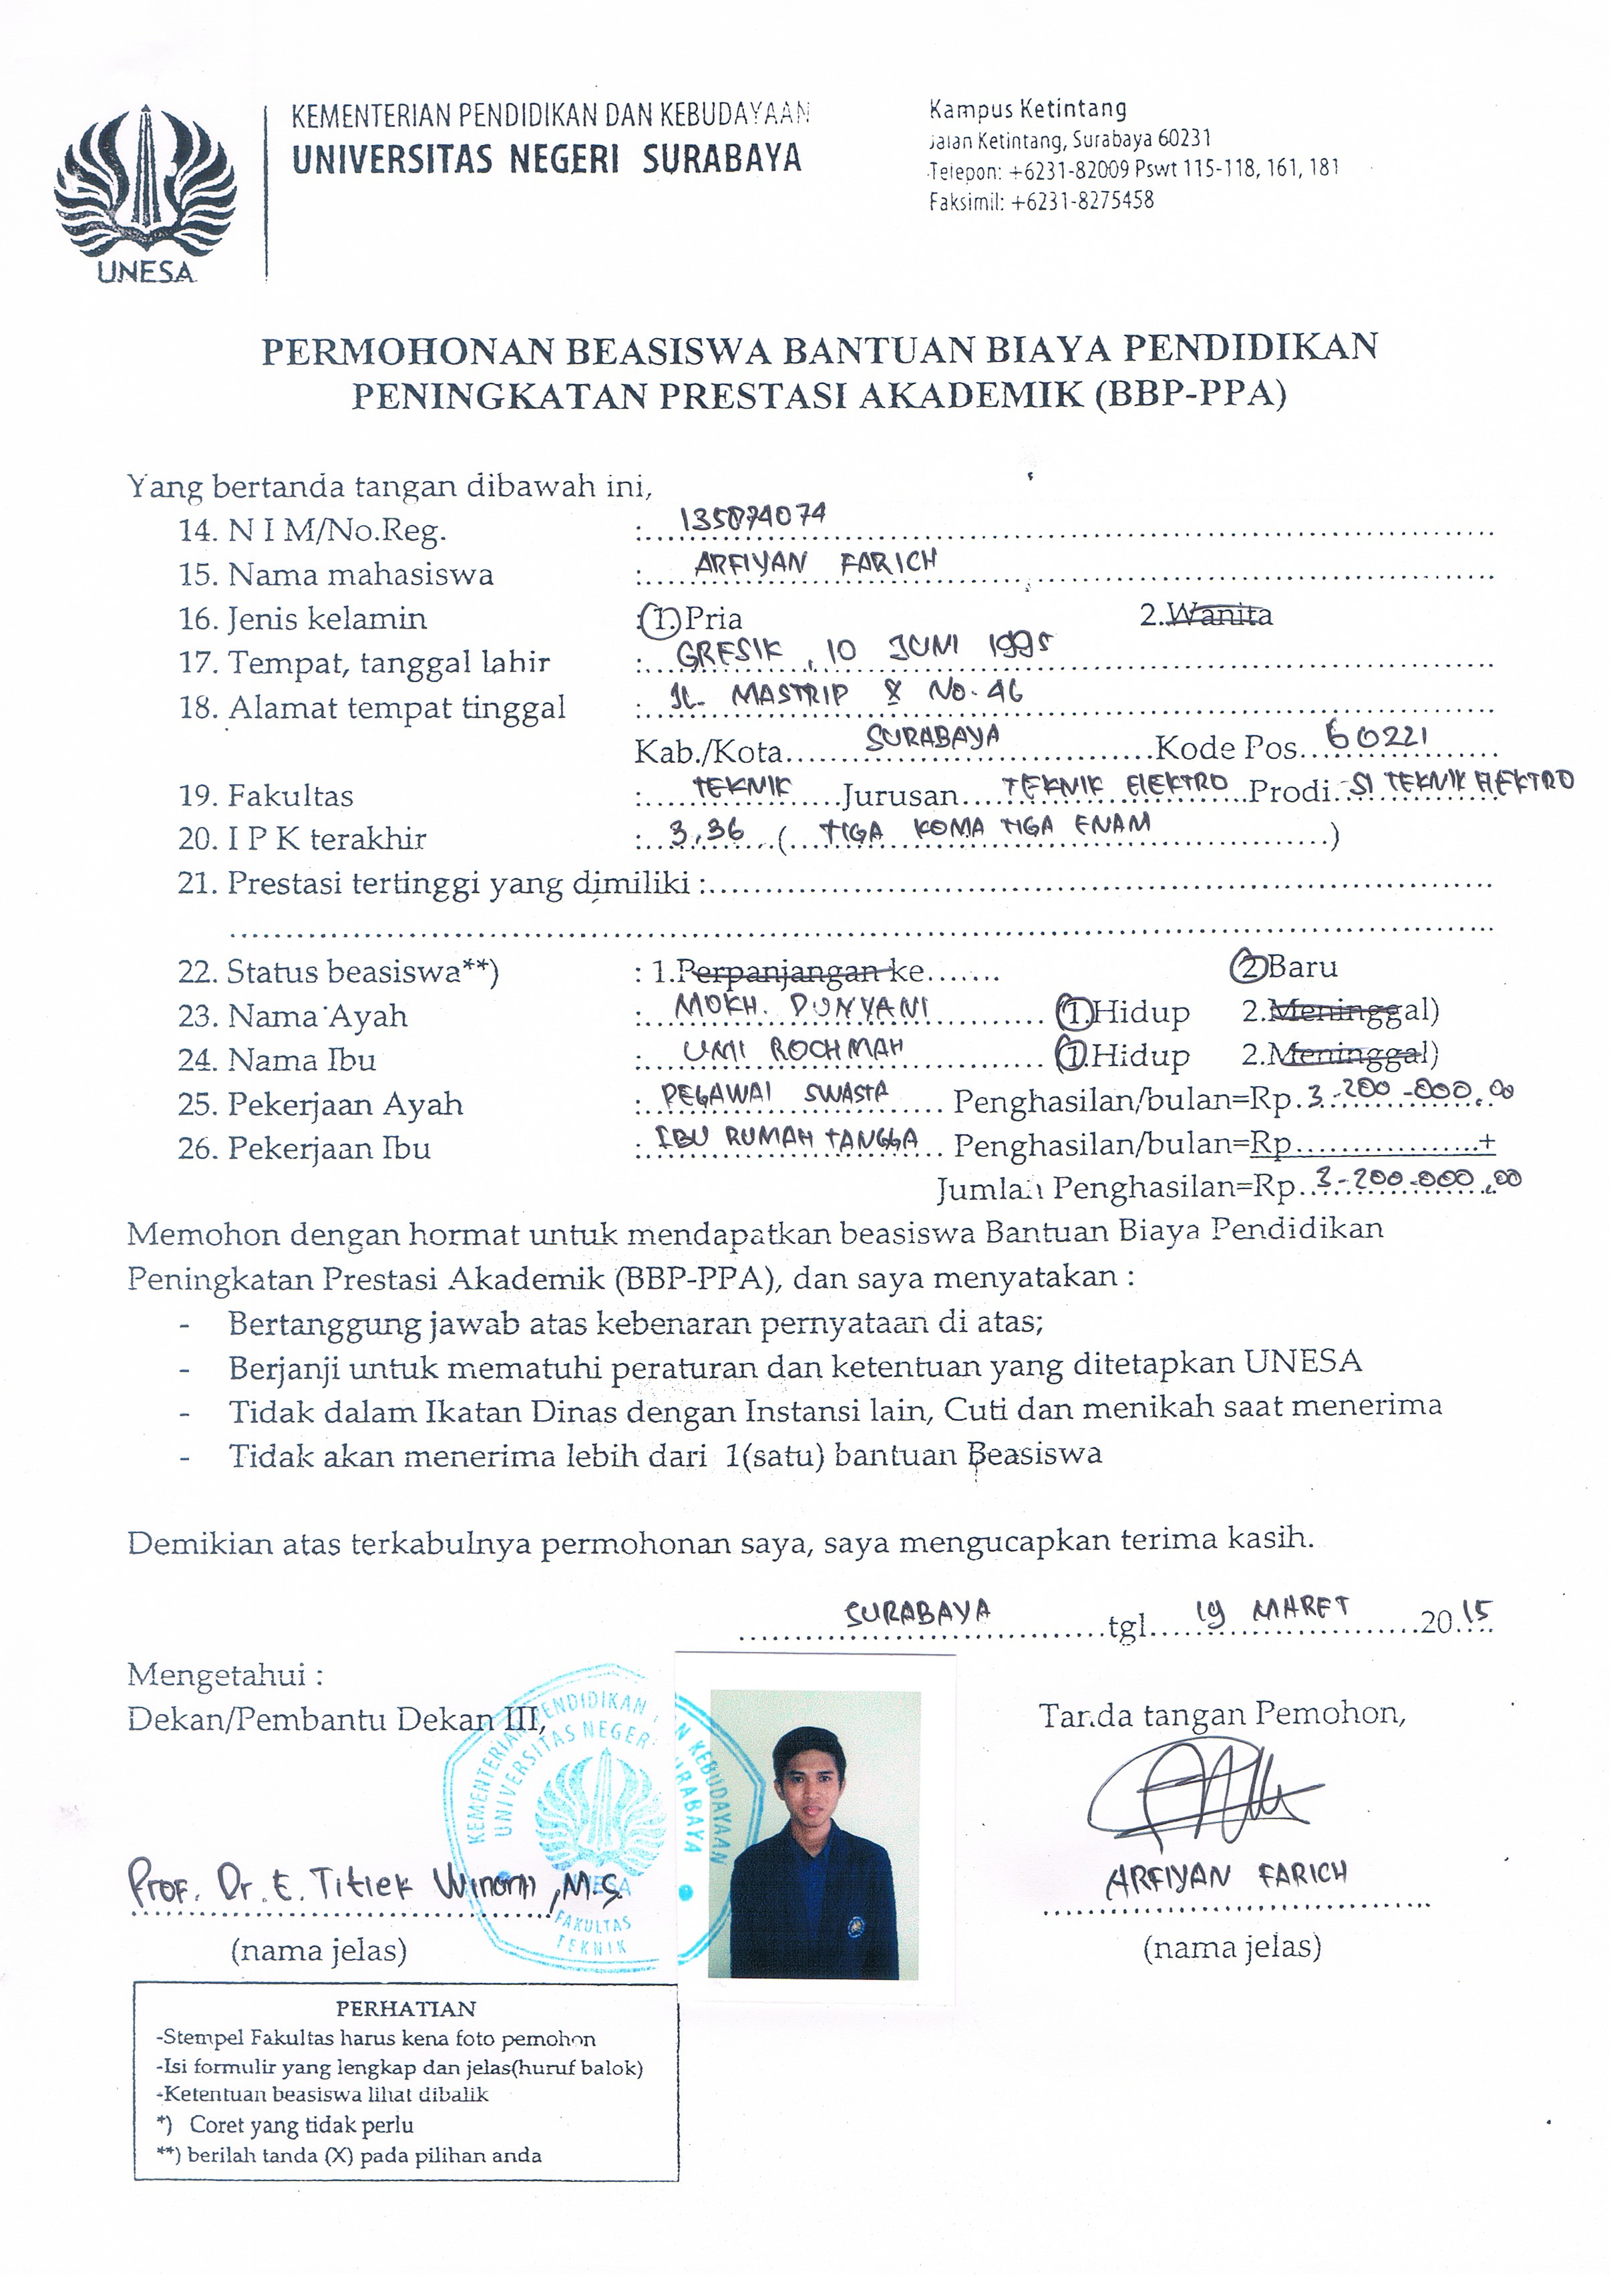 KEMENTERIAN PENDIDIKAN DAN KEBUDAYAAN
UNIVERSITAS NEGERI SURABAYA
UNESA
Kampus Ketintang
Jalan Ketintang, Surabaya 60231
Telepon: +6231-82009 Pswt 115-118, 161, 181
Faksimil: +6231-8275458
PERMOHONAN BEASISWA BANTUAN BIAYA PENDIDIKAN
PENINGKATAN PRESTASI AKADEMIK (BBP-PPA)
Yang bertanda tangan dibawah ini,
14. N I M/No.Reg. : 135874074
15. Nama mahasiswa : ARFIYAN FARICH
16. Jenis kelamin : 1. Pria 2. Wanita
17. Tempat, tanggal lahir : GRESIK, 10 JUNI 1995
18. Alamat tempat tinggal : JL. MASTRIP X No. 46
Kab./Kota SURABAYA Kode Pos 60221
19. Fakultas : TEKNIK Jurusan TEKNIK ELEKTRO Prodi S1 TEKNIK ELEKTRO
20. I P K terakhir : 3,36 (TIGA KOMA TIGA ENAM)
21. Prestasi tertinggi yang dimiliki :
22. Status beasiswa**) : 1.Perpanjangan ke....... 2 Baru
23. Nama Ayah : MOKH. DUNYANI 1.Hidup 2.Meninggal)
24. Nama Ibu : UMI ROCHMAH 1.Hidup 2.Meninggal)
25. Pekerjaan Ayah : PEGAWAI SWASTA Penghasilan/bulan=Rp. 3.200.000,00
26. Pekerjaan Ibu : IBU RUMAH TANGGA Penghasilan/bulan=Rp................+
Jumlah Penghasilan=Rp. 3.200.000,00
Memohon dengan hormat untuk mendapatkan beasiswa Bantuan Biaya Pendidikan
Peningkatan Prestasi Akademik (BBP-PPA), dan saya menyatakan :
- Bertanggung jawab atas kebenaran pernyataan di atas;
- Berjanji untuk mematuhi peraturan dan ketentuan yang ditetapkan UNESA
- Tidak dalam Ikatan Dinas dengan Instansi lain, Cuti dan menikah saat menerima
- Tidak akan menerima lebih dari 1(satu) bantuan Beasiswa
Demikian atas terkabulnya permohonan saya, saya mengucapkan terima kasih.
SURABAYA tgl. 19 MARET 2015
Mengetahui :
Dekan/Pembantu Dekan III,
Tanda tangan Pemohon,
KEMENTERIAN PENDIDIKAN DAN KEBUDAYAAN
UNIVERSITAS NEGERI SURABAYA
UNESA
FAKULTAS
TEKNIK
Prof. Dr. E. Titiek Winarni, M.S.
(nama jelas)
ARFIYAN FARICH
(nama jelas)
PERHATIAN
-Stempel Fakultas harus kena foto pemohon
-Isi formulir yang lengkap dan jelas(huruf balok)
-Ketentuan beasiswa lihat dibalik
*) Coret yang tidak perlu
**) berilah tanda (X) pada pilihan anda